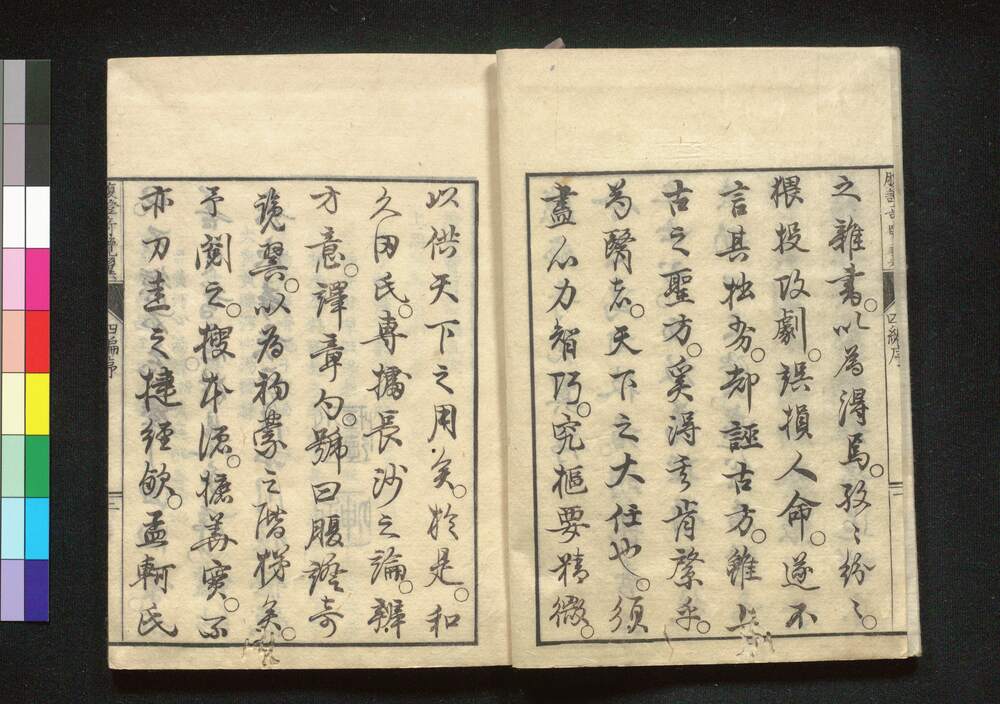 之雜書。以為得焉。孜〻紛〻。
猥投攻劇。誤損人命。遂不
言其拙劣。却誣古方。雖上
古之聖方。奚得其肯綮乎。
為醫者。天下之大任也。須
盡心力智巧。究樞要精微。
四編序
以供天下之用矣。於是。和
久田氏。專據長沙之論。辨
方意。譯章句。號曰腹證奇
覽翼。以為初學之階梯矣。
予閱之。搜本源。摭善實。不
亦刀圭之捷經歟。孟軻氏
腹證奇覽翼
四編序
二